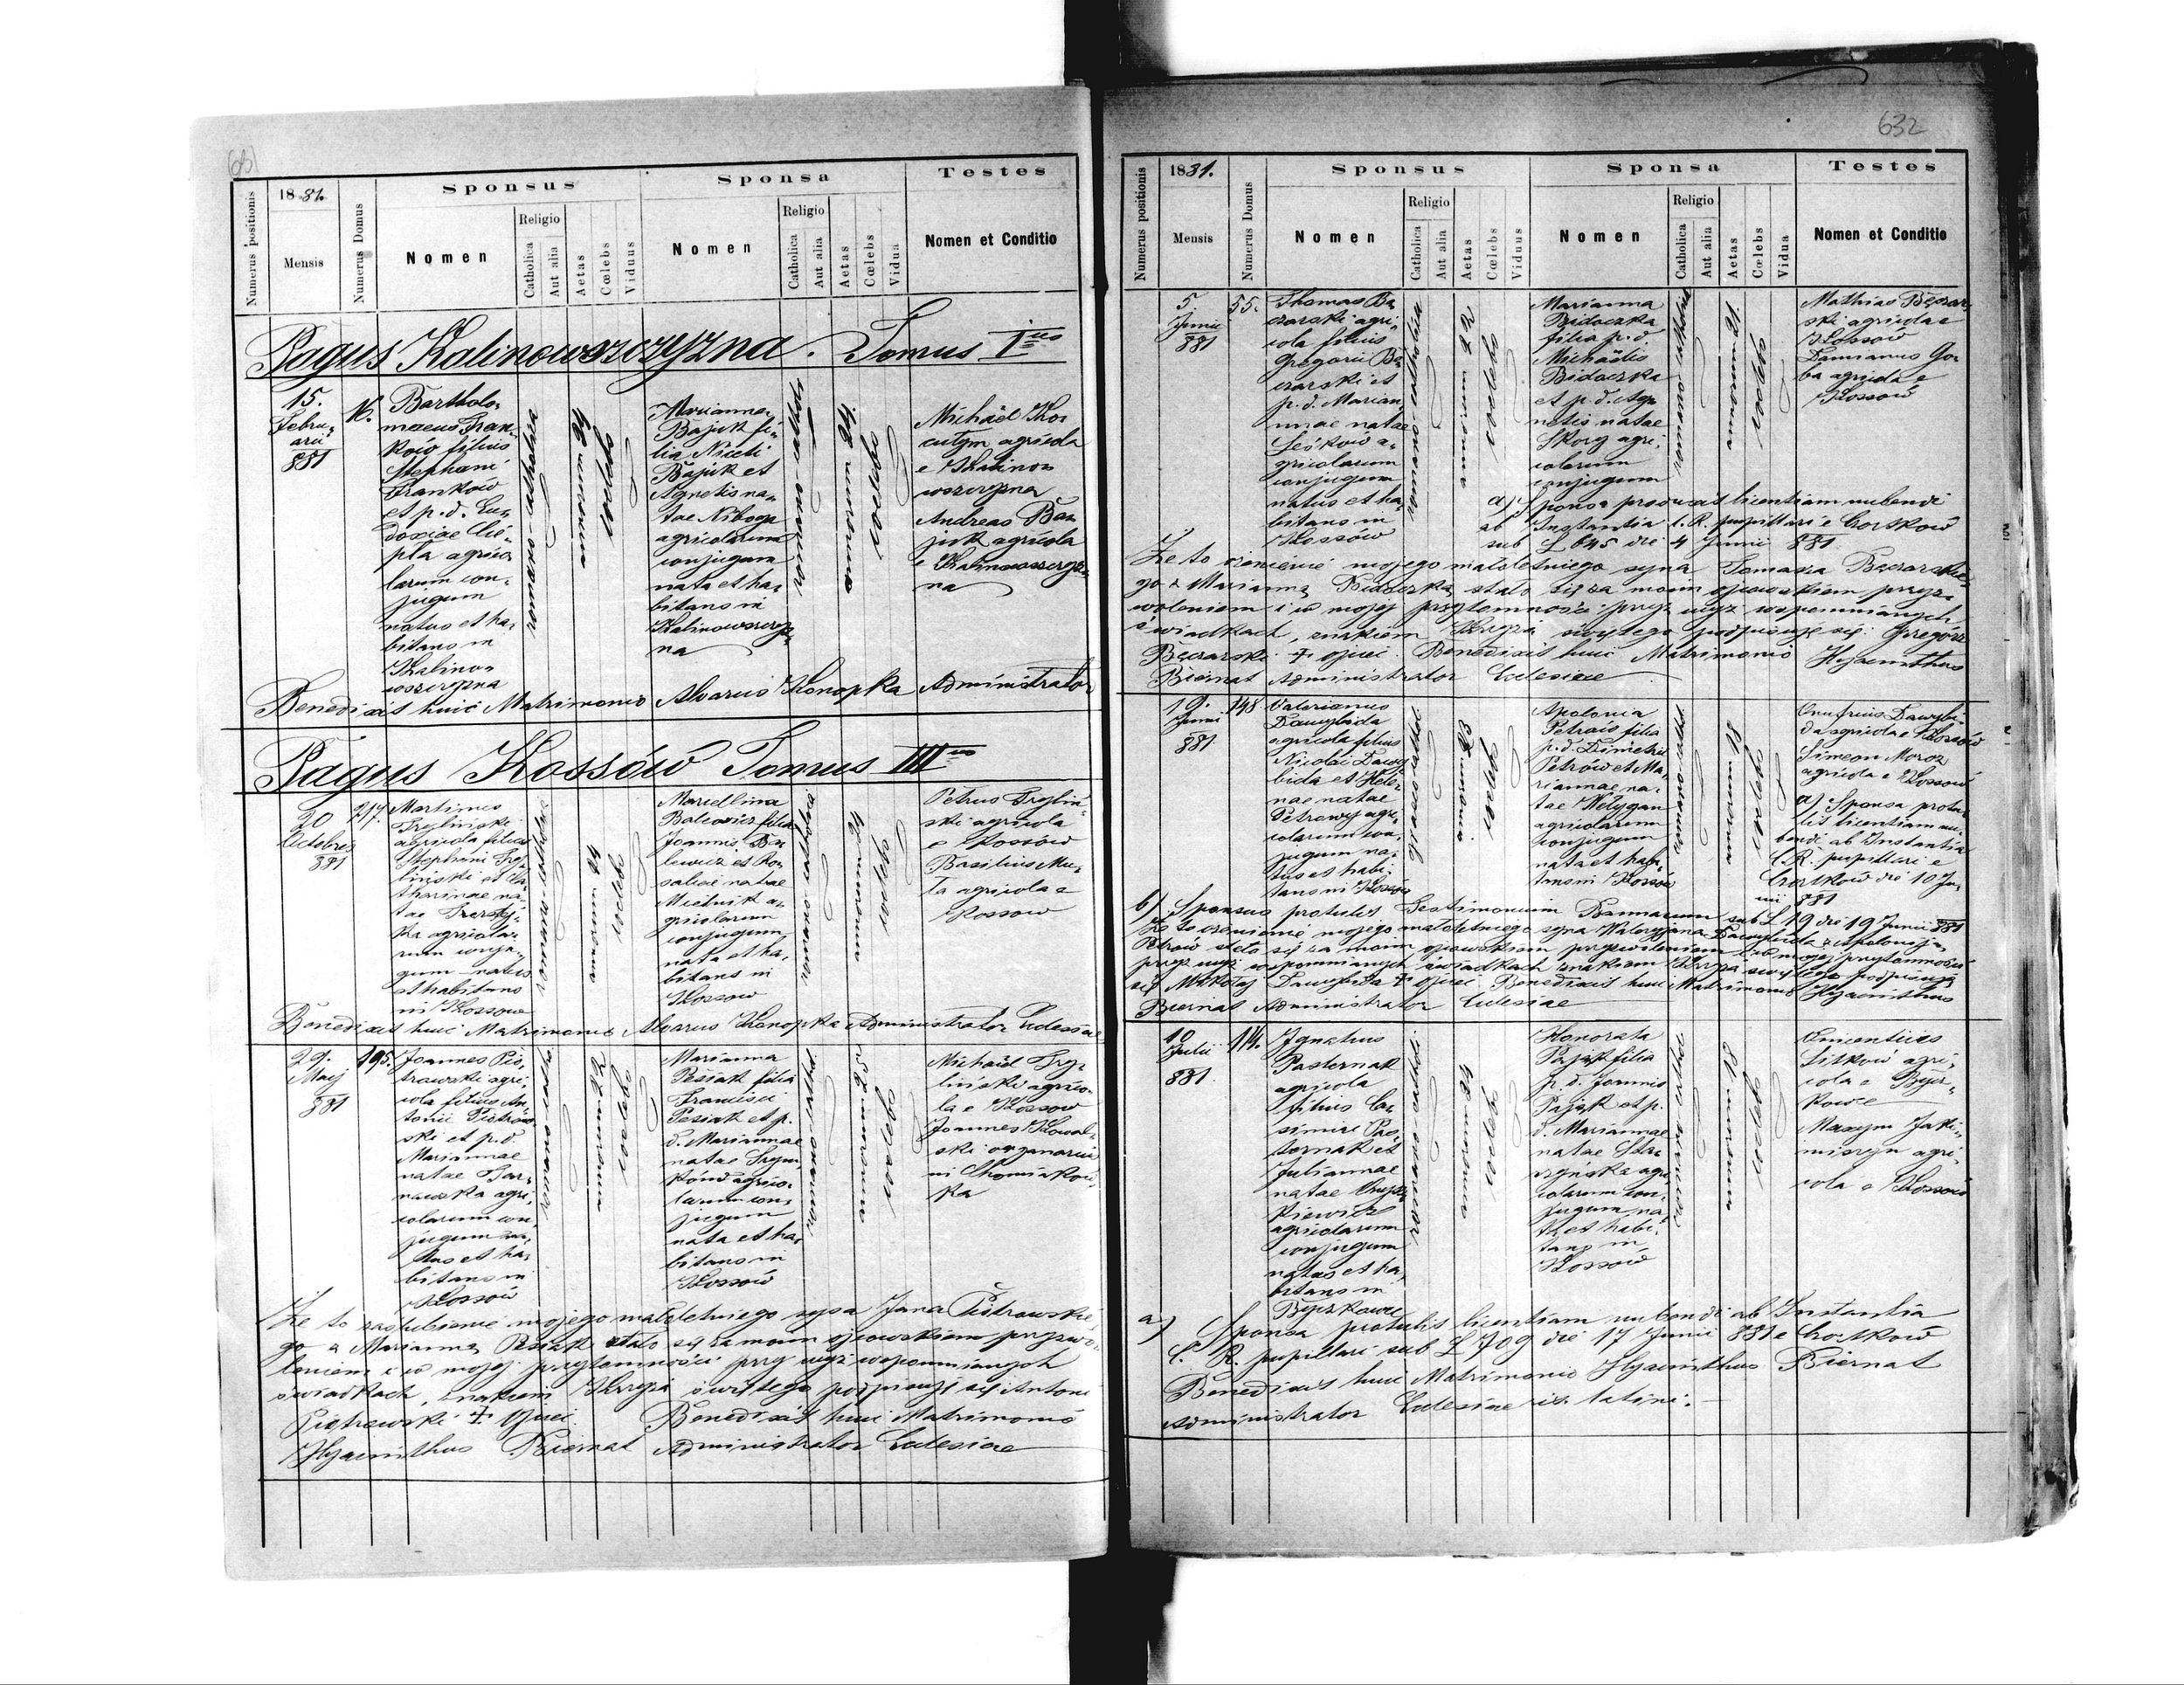 631
Numerus positionis
1881.
Mensis
Numerus Domus
Sponsus
Nomen
Religio
Catholica
Aut alia
Aetas
Cœlebs
Viduus
Sponsa
Nomen
Religio
Catholica
Aut alia
Aetas
Cœlebs
Vidua
Testes
Nomen et Conditio
Pagus Kalinowszczyzna. Tomus I
15.
Febru-
arii
881
16.
Bartholo-
maeus Fran-
ków filius
Stephani
Franków
et p. d. Eu-
doxiae Cie-
pła agrico-
larum con-
jugum
natus et ha-
bitans in
Kalino-
wszczyzna
Marianna
Bajuk fi-
lia Niceti
Bajuk et
Agnetis na-
tae
agricolarum
conjugum
nata et ha-
bitans in
Kalinowszczyz-
na
Michaël
agricola
e Kalino-
wszczyzna
Andreas Ba-
juk agricola
e Kalinowszczyz-
na
Benedixit huic Matrimonio Alvarus Konopka Administrator
Pagus Kossów Tomus III
20
Octobris
881
217.
Martinus
Tryliński
agricola filius
Stephani Try-
liński et Ca-
tharinae na-
tae
agricola-
rum conju-
gum natus
et habitans
in Kossow
Marcellina
Balewicz filia
Joannis Ba-
lewicz et Ro-
saliae natae
Mielnik a-
gricolarum
conjugum
nata et ha-
bitans in
Kossow
Petrus Tryliń-
ski agricola
e Kossów
Basilius Mu-
agricola e
Kossow
Benedixit huic Matrimonio Alvarus Konopka Administrator Eclesiae
29.
Maij
881
195.
Joannes Pio-
trowski agri-
cola filius An-
tonii Piotrow-
ski et p. d.
Mariannae
natae Tar-
nawska agri-
colarum con-
jugum na-
tus et ha-
bitans in
Kossów
Marianna
Pesiak filia
Francisci
Pesiak et p.
d. Mariannae
natae Szym-
ków agrico-
larum con-
jugum
nata et ha-
bitans in
Kossów
Michaël Try-
liński agrico-
la e Kossow
Joannes Kowal-
ski organarius
in Chomiaków-
ka
Że to zaślubienie mojego małoletniego syna Jana Piotrowskie-
go z Marianną Pesiak stało się za moim ojcowskiem przyzwo-
leniem i w mojej przytomności przy wyż wspomnianych
świadkach, znakiem Krzyża świętego podpisuję się Antoni
Piotrowski + ojciec. Benedixit huic Matrimonio
Hyacinthus Biernat Administrator Eclesiae
632
Numerus positionis
1881.
Mensis
Numerus Domus
Sponsus
Nomen
Religio
Catholica
Aut alia
Aetas
Cœlebs
Viduus
Sponsa
Nomen
Religio
Catholica
Aut alia
Aetas
Cœlebs
Vidua
Testes
Nomen et Conditio
5
Junii
881
55.
Thomas Bę-
czarski agri-
cola filius
Gregorii Bę-
czarski et
p. d. Marian-
nae natae
Leśków a-
gricolarum
conjugum
natus et ha-
bitans in
Kossów
Marianna
Bidaczka
filia p. d.
Michaëlis
Bidaczka
et p. d. Ag-
netis natae
Skory agri-
colarum
conjugum
Mathias Bęczar-
ski agricola e
Kossów
Damianus Go-
ba agricola e
Kossów
a) Sponsa produxit licentiam nubendi
ab Instantia C. R. pupillari e Czortków
sub L 645 die 4 Junii 881
Że to ożenienie mojego małoletniego syna Tomasza Bęczarskie-
go z Marianną Bidaczką stało się za moim ojcowskiem przyz-
woleniem i w mojej przytomności przy wyż wspomnianych
świadkach, znakiem Krzyża świętego podpisuję się: Gregórz
Bęczarski + ojciec. Benedixit huic Matrimonio Hyacinthus
Biernat Administrator Eclesiae
19.
Junii
881
148
Valerianus
Dawybida
agricola filius
Nicolai Dawy-
bida et Hele-
nae natae
Petrowy agri-
colarum con-
jugum na-
tus et habi-
tans in Kossów
Apolonia
Petrów filia
p. d. Dimetrii
Petrów et Ma-
riannae na-
tae Wełygan
agricolarum
conjugum
nata et habi-
tans in Kossów
Onufrius Dawybi-
da agricola e Kossów
Simeon Moroz
agricola e Kossow
a) Sponsa protu-
lit licentiam nu-
bendi ab Instantia
C. R. pupillari e
Czortków die 10 Ju-
nii 881
b) Sponsus protulit Testimonium Bannarum sub L 19 die 19 Junii 881
Że to ożenienie mojego małoletniego syna Waleryjana Dawybida z Apoloniją
Petrow stało się za moim ojcowskiem przyzwoleniem i w mojej przytomności
przy wyż wspomnianych świadkach znakiem Krzyża świętego podpisuję
się Mikołaj Dawybida + ojciec Benedixit huic Matrimonio Hyacinthus
Biernat Administrator Eclesiae
10
Julii
881
114.
Ignatius
Pasternak
agricola
filius Ca-
simiri Pas-
ternak et
Juliannae
natae
agricolarum
conjugum
natus et ha-
bitans in
Byczkowce
Honorata
Pająk filia
p. d. Joannis
Pająk et p.
d. Mariannae
natae
agri-
colarum con-
jugum na-
ta et habi-
tans in
Kossów
Vincentius
Litków agri-
cola e Bycz-
kowce
Maxym Jaki-
miszyn agri-
cola e Kossów
a) Sponsa protulit licentiam nubendi ab Instantia
C. R. pupillari sub L 709 die 17 Junii 881 e Czortków
Benedixit huic Matrimonio Hyacinthus Biernat
Administrator Eclesiae rit. latini.